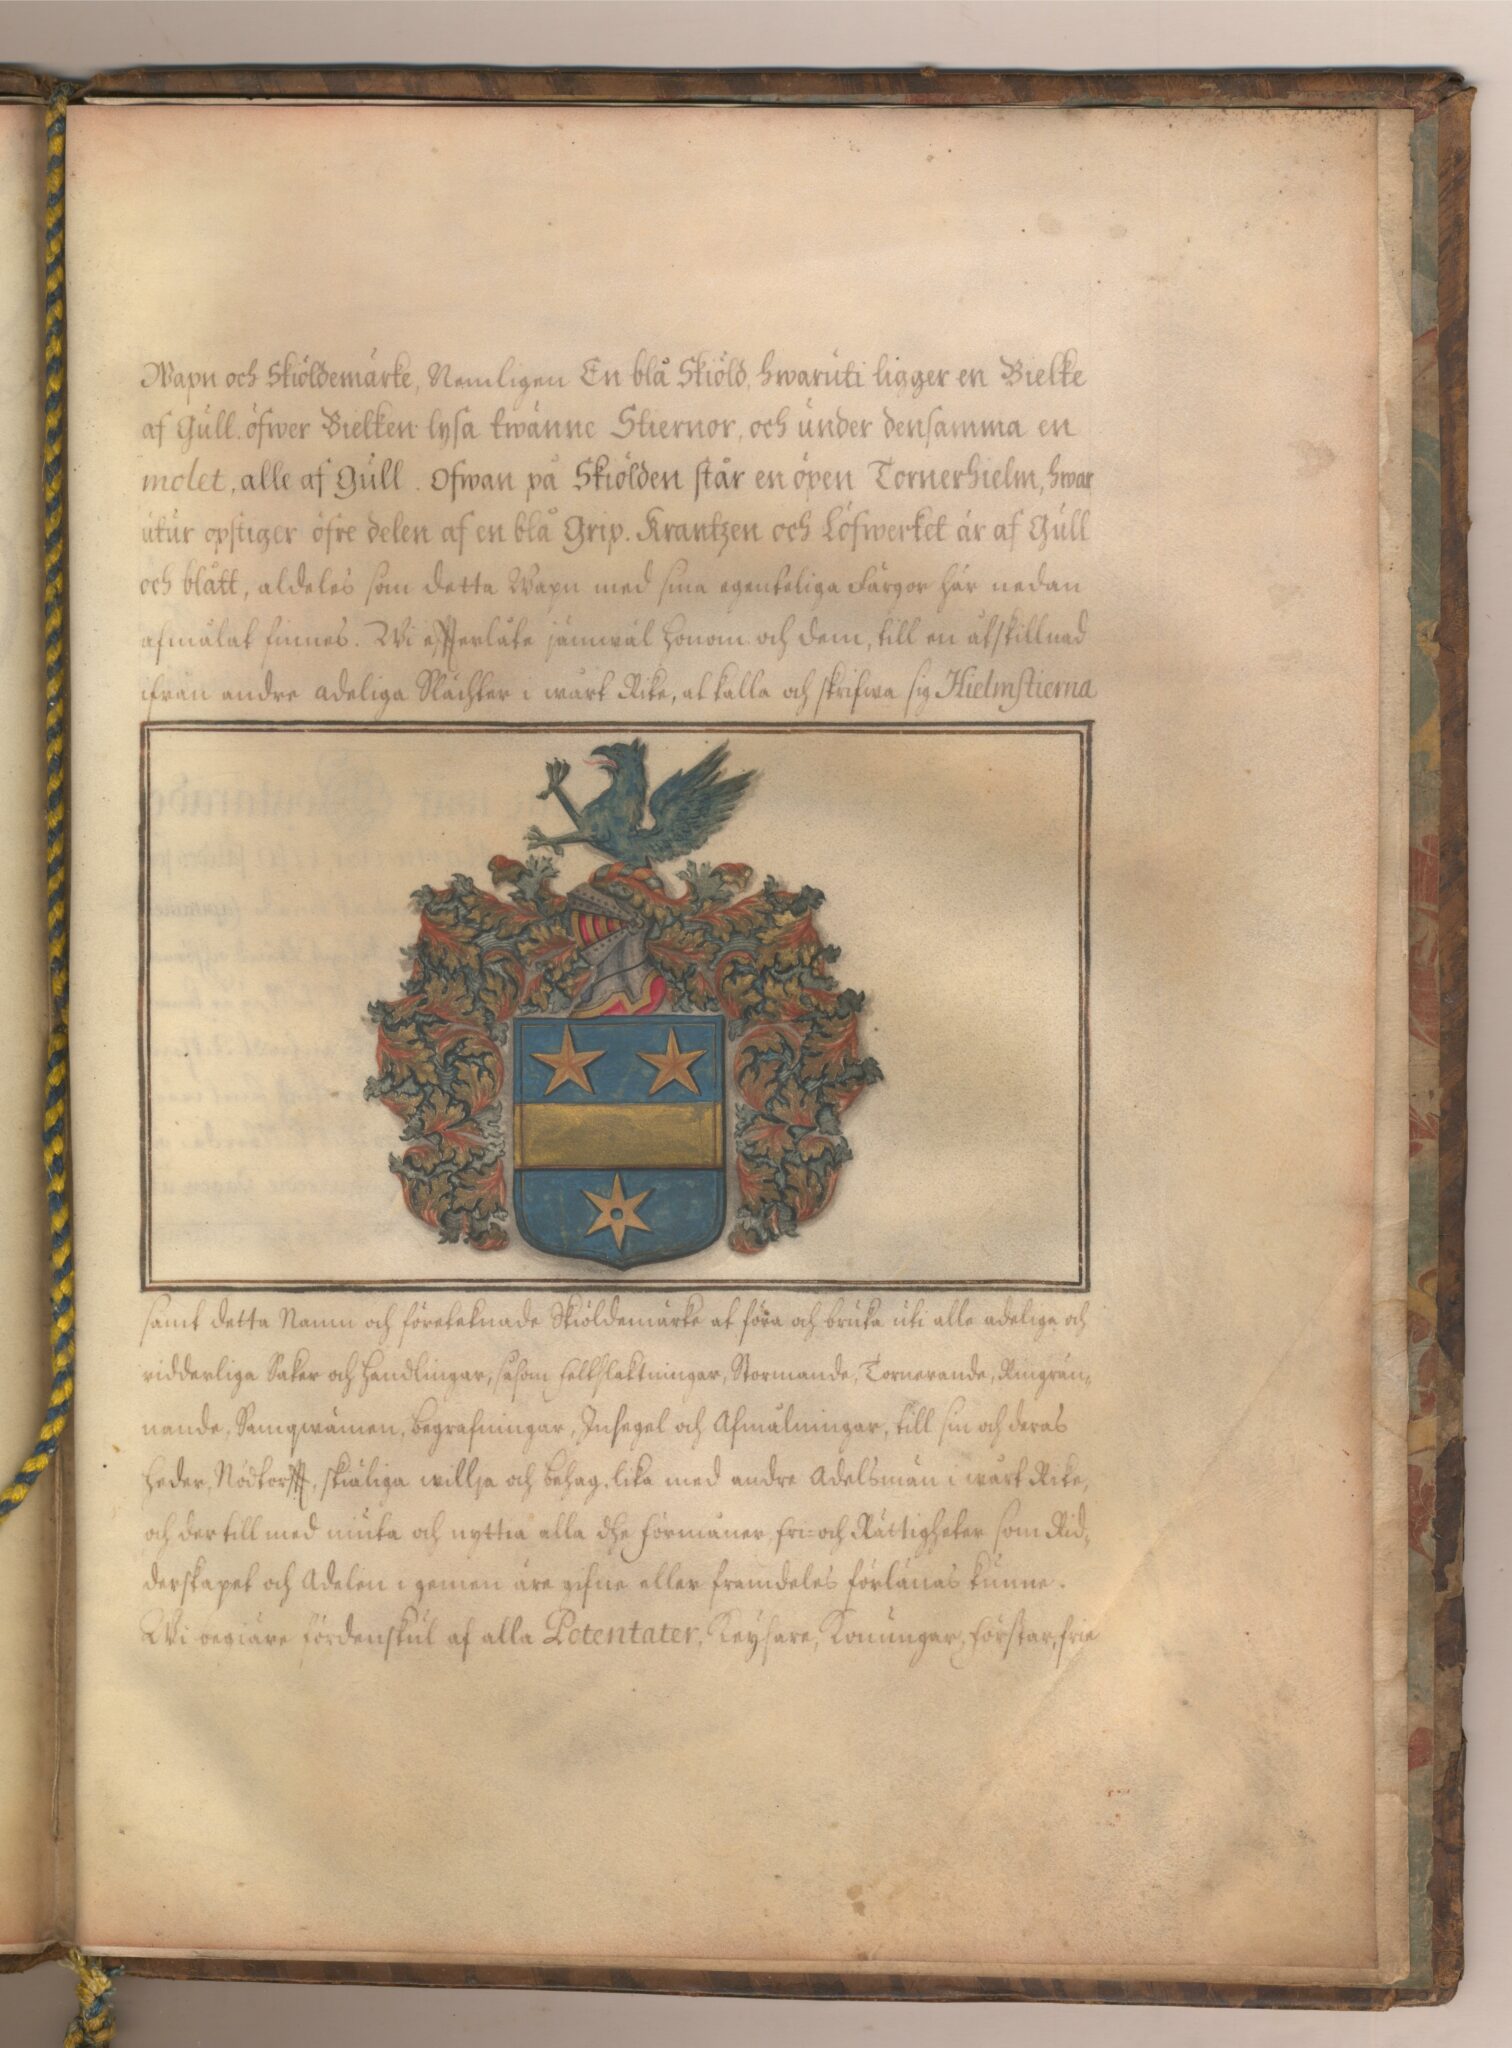 Wapn och Skiöldemärke, Nemligen En blå Skiöld, hwaruti ligger en Bielke
af Gull. öfwer Bielken lysa twänne Stiernor, och under densamma en
molet, alle af Gull. Ofwan på Skiölden står en öpen Tornerhielm, hwar
utur opstiger öfre delen af en blå Grip. Krantzen och Löfwerket är af Gull
och blått, aldeles som detta Wapn med sina egenteliga Färgor här nedan
afmålat finnes. Wi efterlåte jämwäl honom och dem, till en åtskillnad
ifrån andre adeliga Slächter i wårt Rike, at kalla och skrifwa sig Hielmstierna
samt detta Namn och företeknade Skiöldemärke at föra och bruka uti alle adelige och
ridderliga Saker och Handlingar, såsom Feltslaktningar, Stormande, Tornerande, Ringrän-
nande, Samqwämen, begrafningar, Insegel och Afmålningar, till sin och deras
heder, Nödtorfft, skiäliga willja och behag, lika med andre Adelsmän i wårt Rike,
och der till med niuta och nyttia alla dhe förmåner, fri- och Rättigheter som Rid-
derskapet och Adelen i gemen äre gifne eller framdeles förlänas kunne.
Wi begiäre fördenskul af alla Potentater, Keysare, Konungar, Förstar, frie